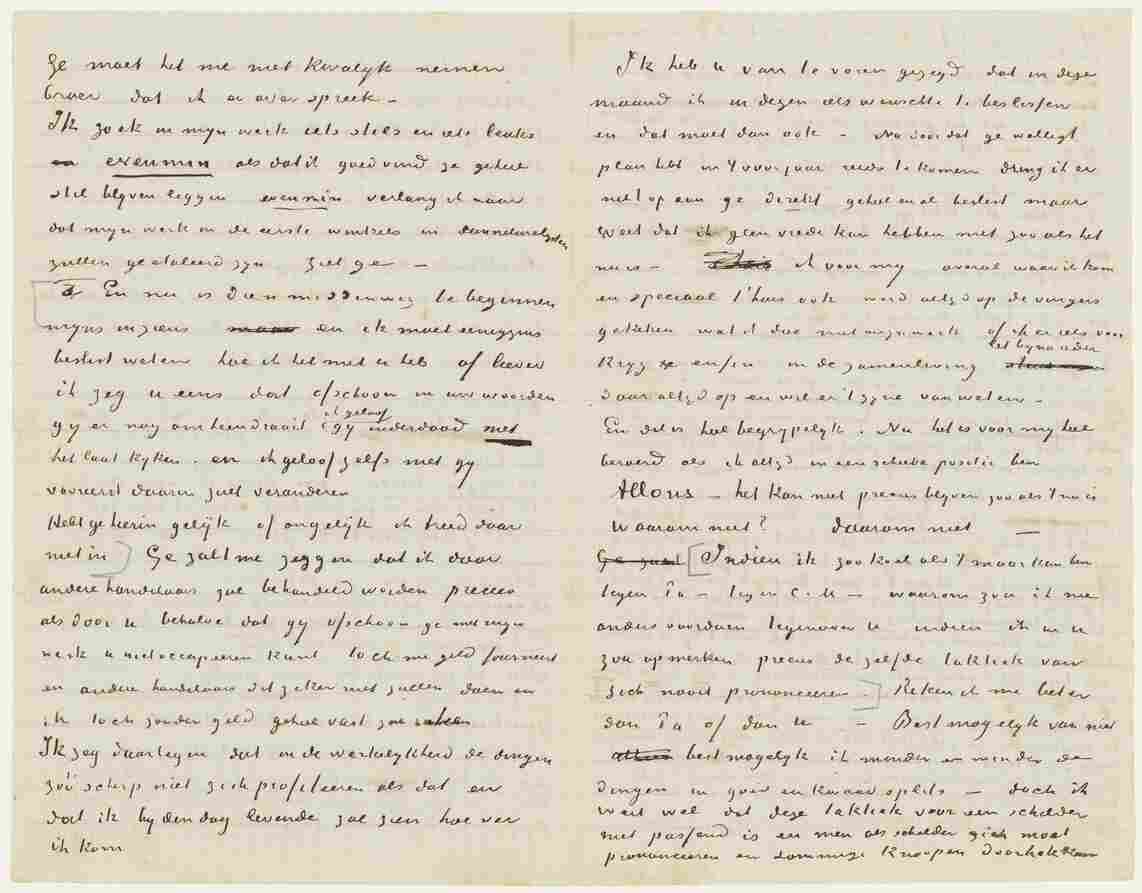 Ge moet het me niet kwalijk nemen
broer dat ik er over spreek –
Ik zoek in mijn werk iets stils en iets leuks
en evenmin als dat ik goed vind ge geheel
stil blijven liggen evenmin verlang ik naar
dat mijn werk in de eerste winkels in
zullen geetaleerd zijn ziet ge –
En nu is dien middenweg te beginnen
mijns inziens maar en ik moet eenigzins
beslist weten hoe ik het met u heb of liever
ik zeg u eens dat ofschoon in uw woorden
gij er nog omheendraait ik geloof gij inderdaad niet
het laat kijken. en ik geloof zelfs niet gij
vooreerst daarin zult veranderen
Hebt ge hierin gelijk of ongelijk ik treed daar
niet in Ge zult me zeggen dat ik door
andere handelaars zal behandeld worden precies
als door u behalve dat gij ofschoon ge met mijn
werk u niet occuperen kunt toch me geld fourneert
en andere handelaars dit zeker niet zullen doen en
ik toch zonder geld geheel vast zal raken
Ik zeg daartegen dat in de werkelijkheid de dingen
zóó scherp niet zich profileeren als dat en
dat ik bij den dag levende zal zien hoe ver
ik kom
Ik heb u van te voren gezegd dat in deze
maand ik in dezen iets wenschte te beslissen
en dat moet dan ook – Nu doordat ge welligt
plan hebt in 't voorjaar reeds te komen dring ik er
niet op aan ge direkt geheel en al beslist maar
weet dat ik geen vrede kan hebben met zoo als het
nu is – ik voor mij overal waar ik kom
en speciaal t'huis ook word altijd op de vingers
gekeken wat ik doe met mijn werk of ik er iets voor
krijg enfin in de zamenleving let bijna ieder
daar altijd op en wil er t zijne van weten –
En dit is heel begrijpelijk. Nu het is voor mij heel
beroerd als ik altijd in een scheeve positie ben
Allons – het kan niet precies blijven zoo als 't nu is
Waarom niet? daarom niet –
Ge zult Indien ik zoo koel als 't maar kan ben
tegen Pa – tegen C.M – waarom zou ik me
anders voordoen tegenover u indien ik in u
zou opmerken precies dezelfde taktiek van
zich nooit prononceeren. Reken ik me beter
dan Pa of dan u – Best mogelijk van niet
best mogelijk ik minder en minder de
dingen in goed en kwaad splits – doch ik
weet wel dat deze taktiek voor een schilder
niet passend is en men als schilder zich moet
prononceeren en sommige knoopen doorhakken